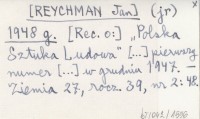 [REYCHMAN Jan] (jr)
1948 g. [Rec. o:] „Polska
Sztuka Ludowa" [...] pierwszy
numer [...] w grudniu 1947. —
Ziemia 27, rocz. 39, nr 2: 48.